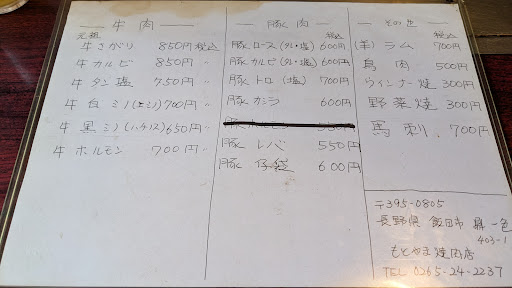 牛肉
元祖
牛さがり 850円 税込
牛カルビ 850円 〃
牛タン塩 750円 〃
牛白ミノ(上ミノ)700円 〃
牛黒ミノ(ハチノス)650円 〃
牛ホルモン 700円 〃
豚肉
税込
豚ロース(タレ・塩)600円
豚カルビ(タレ・塩)600円
豚トロ(塩) 700円
豚カシラ 600円
豚ホルモン 550円
豚レバ 550円
豚子袋 600円
その他
税込
(羊)ラム 700円
鳥肉 500円
ウィンナー焼 300円
野菜焼 300円
馬刺. 700円
〒395-0805
長野県飯田市鼎一色
403-1
もとやま焼肉店
TEL 0265-24-2237